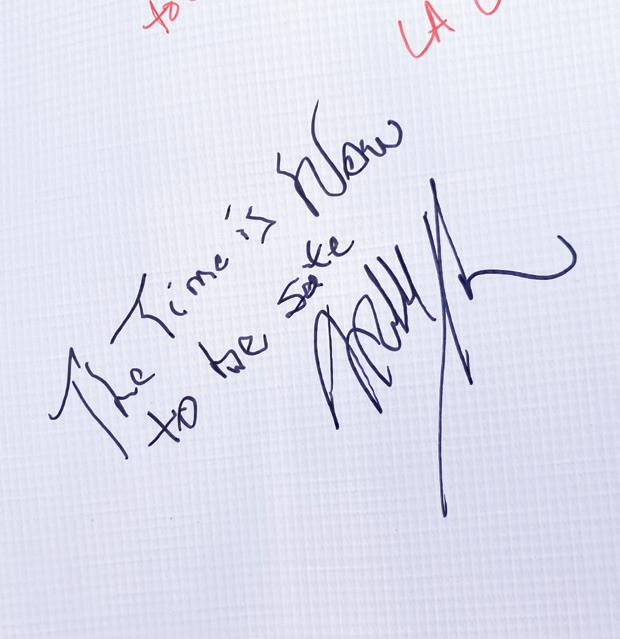 to
LA
The Time is Now
to be safe